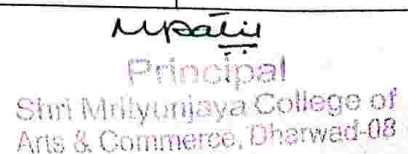 Principal
Shri Mrityunjaya College of
Arts & Commerce, Dharwad-08